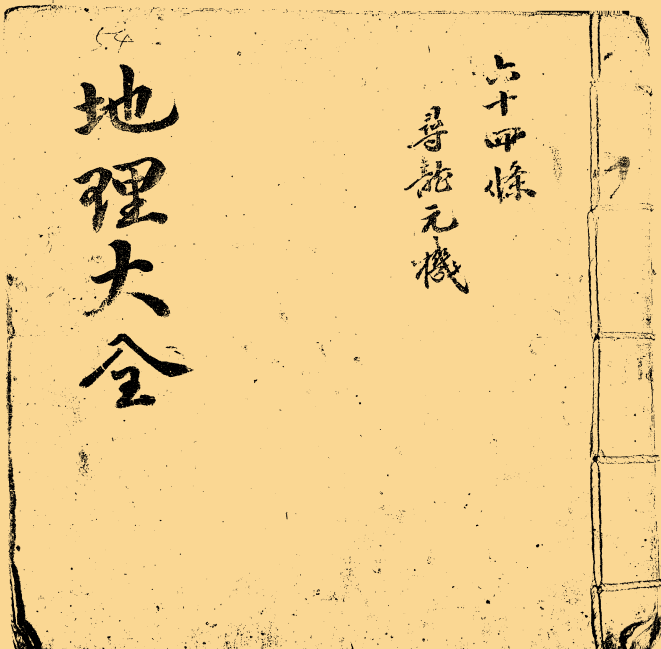 六十四條
尋龍元機
地理大全
54